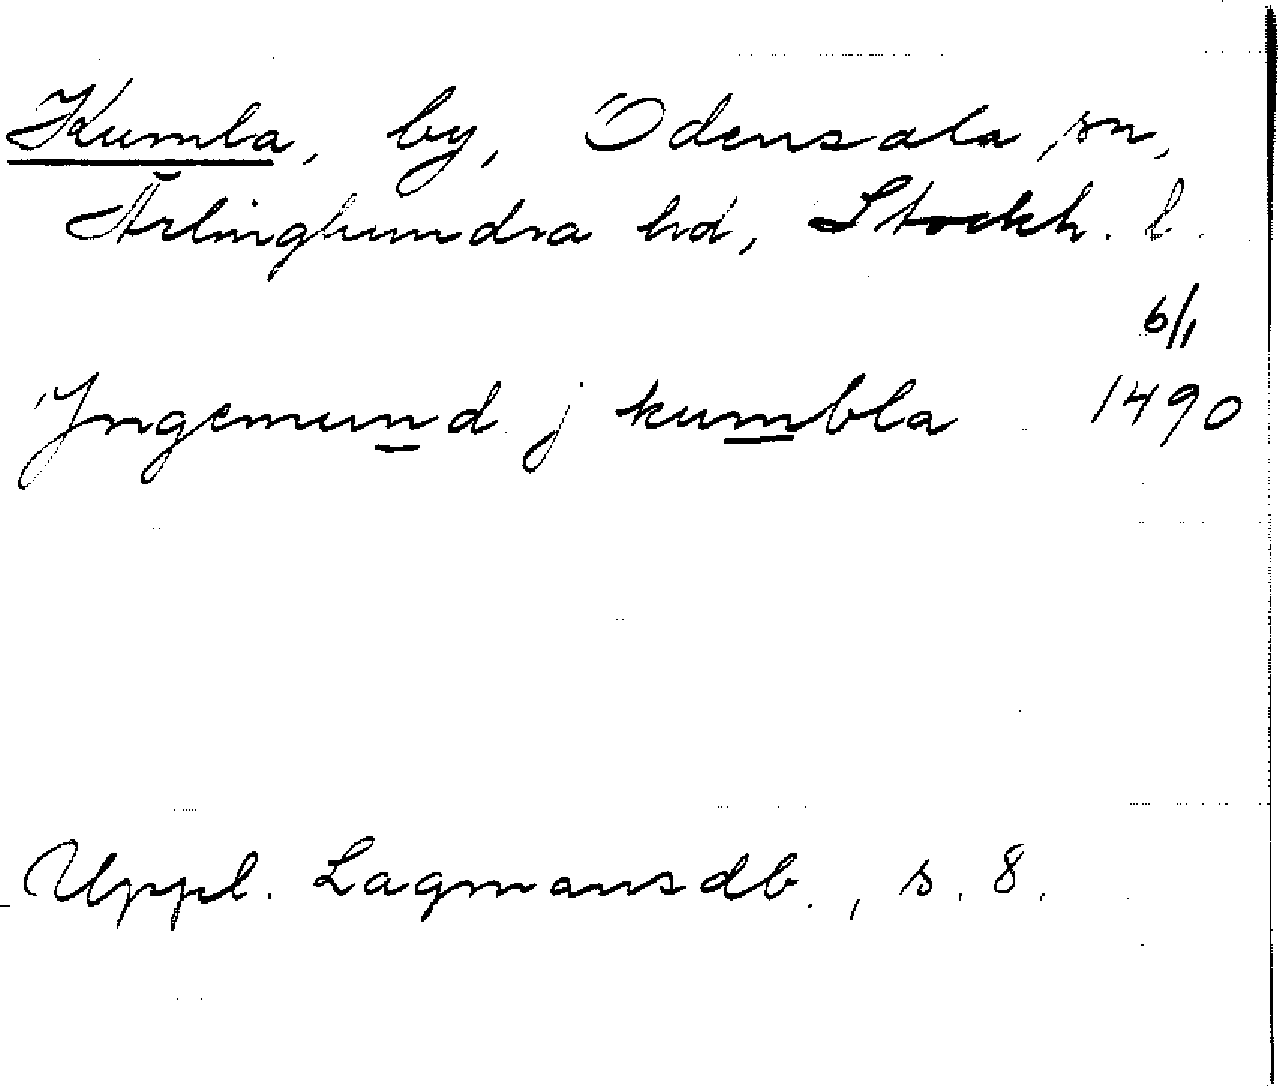 Kumla, by, Odensala sn,
Ärlinghundra hd, Stockh. l.
6/1
Yngemund j kumbla 1490
Uppl. Lagmansdb., s. 8.